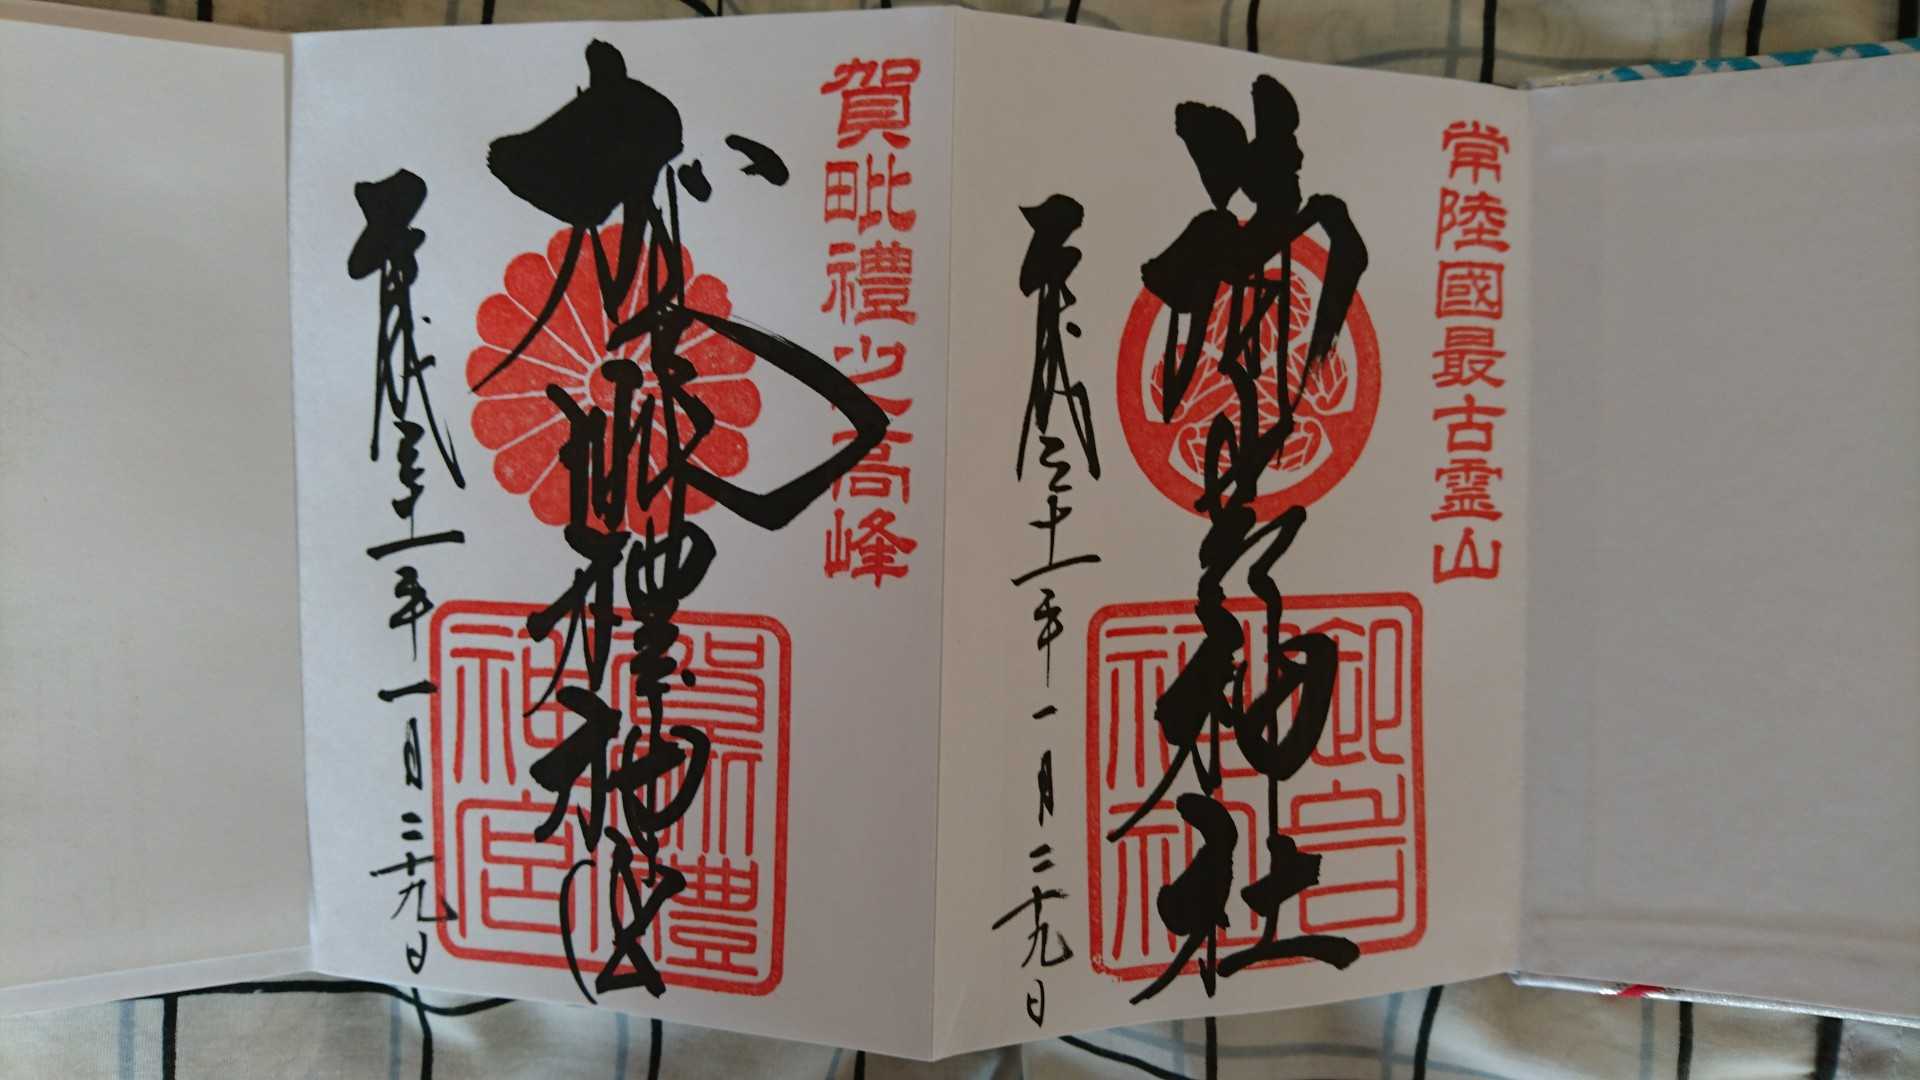 常陸國最古霊山
御岩神社
御岩神社
平成三十一年一月二十九日
賀毗禮之高峰
賀毗禮神宮
賀毗禮神宮
平成三十一年一月二十九日